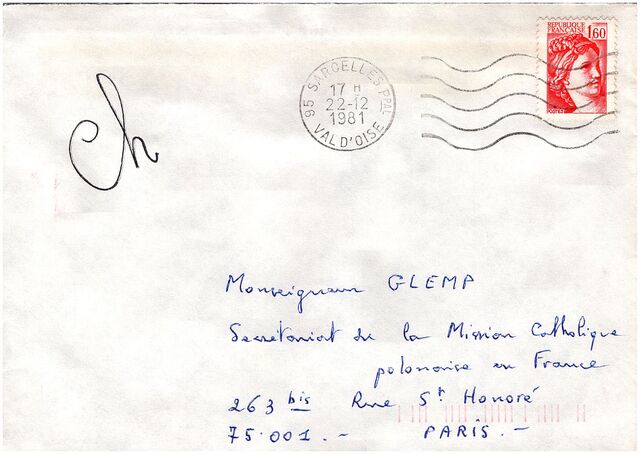 REPUBLIQUE
FRANCAISE 1,60
POSTES
95 SARCELLES PPAL
17 H
22-12
1981
VAL D'OISE
Ch
Monseigneur GLEMP
Secrétariat de la Mission Catholique
polonaise en France
263 bis Rue St Honoré
75.001.- PARIS.-